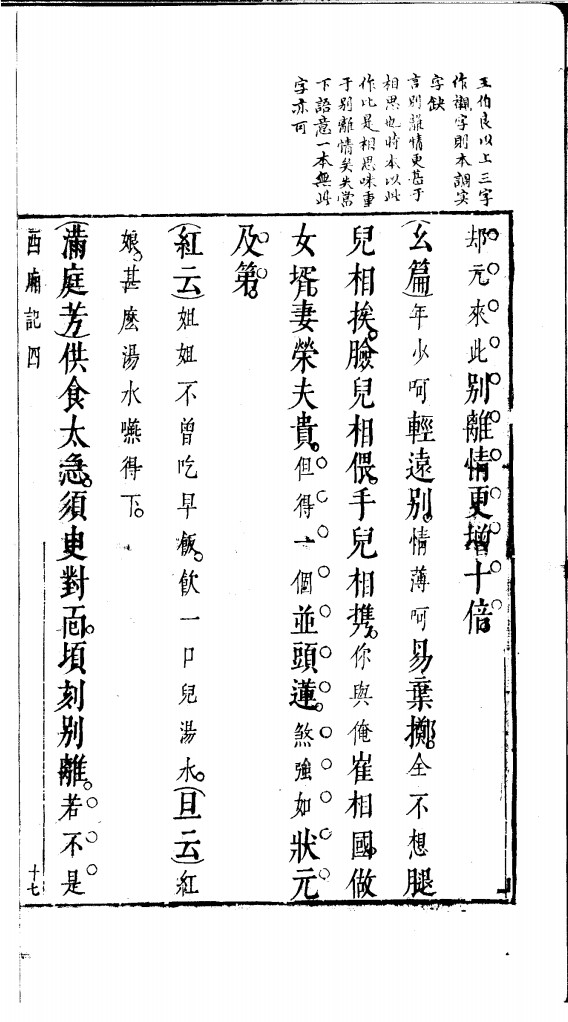 王伯良以上三字
作襯字則本調實
字缺
言別離情更甚于
相思也時本以此
作比是相思味重
于別離情矣失當
下語意一本無此
字亦可
却元來此別離情更增十倍。
(幺篇)年少呵輕遠別。情薄呵易棄擲。全不想腿
兒相挨。臉兒相偎。手兒相攜。你與俺崔相國做
女壻。妻榮夫貴。但得一個並頭蓮。煞強如狀元
及第。
(紅云)姐姐不曾吃早飯。飲一口兒湯水。(旦云)紅
娘。甚麽湯水嚥得下。
(滿庭芳)供食太急。須臾對面。頃刻別離。若不是
西廂記四
十七